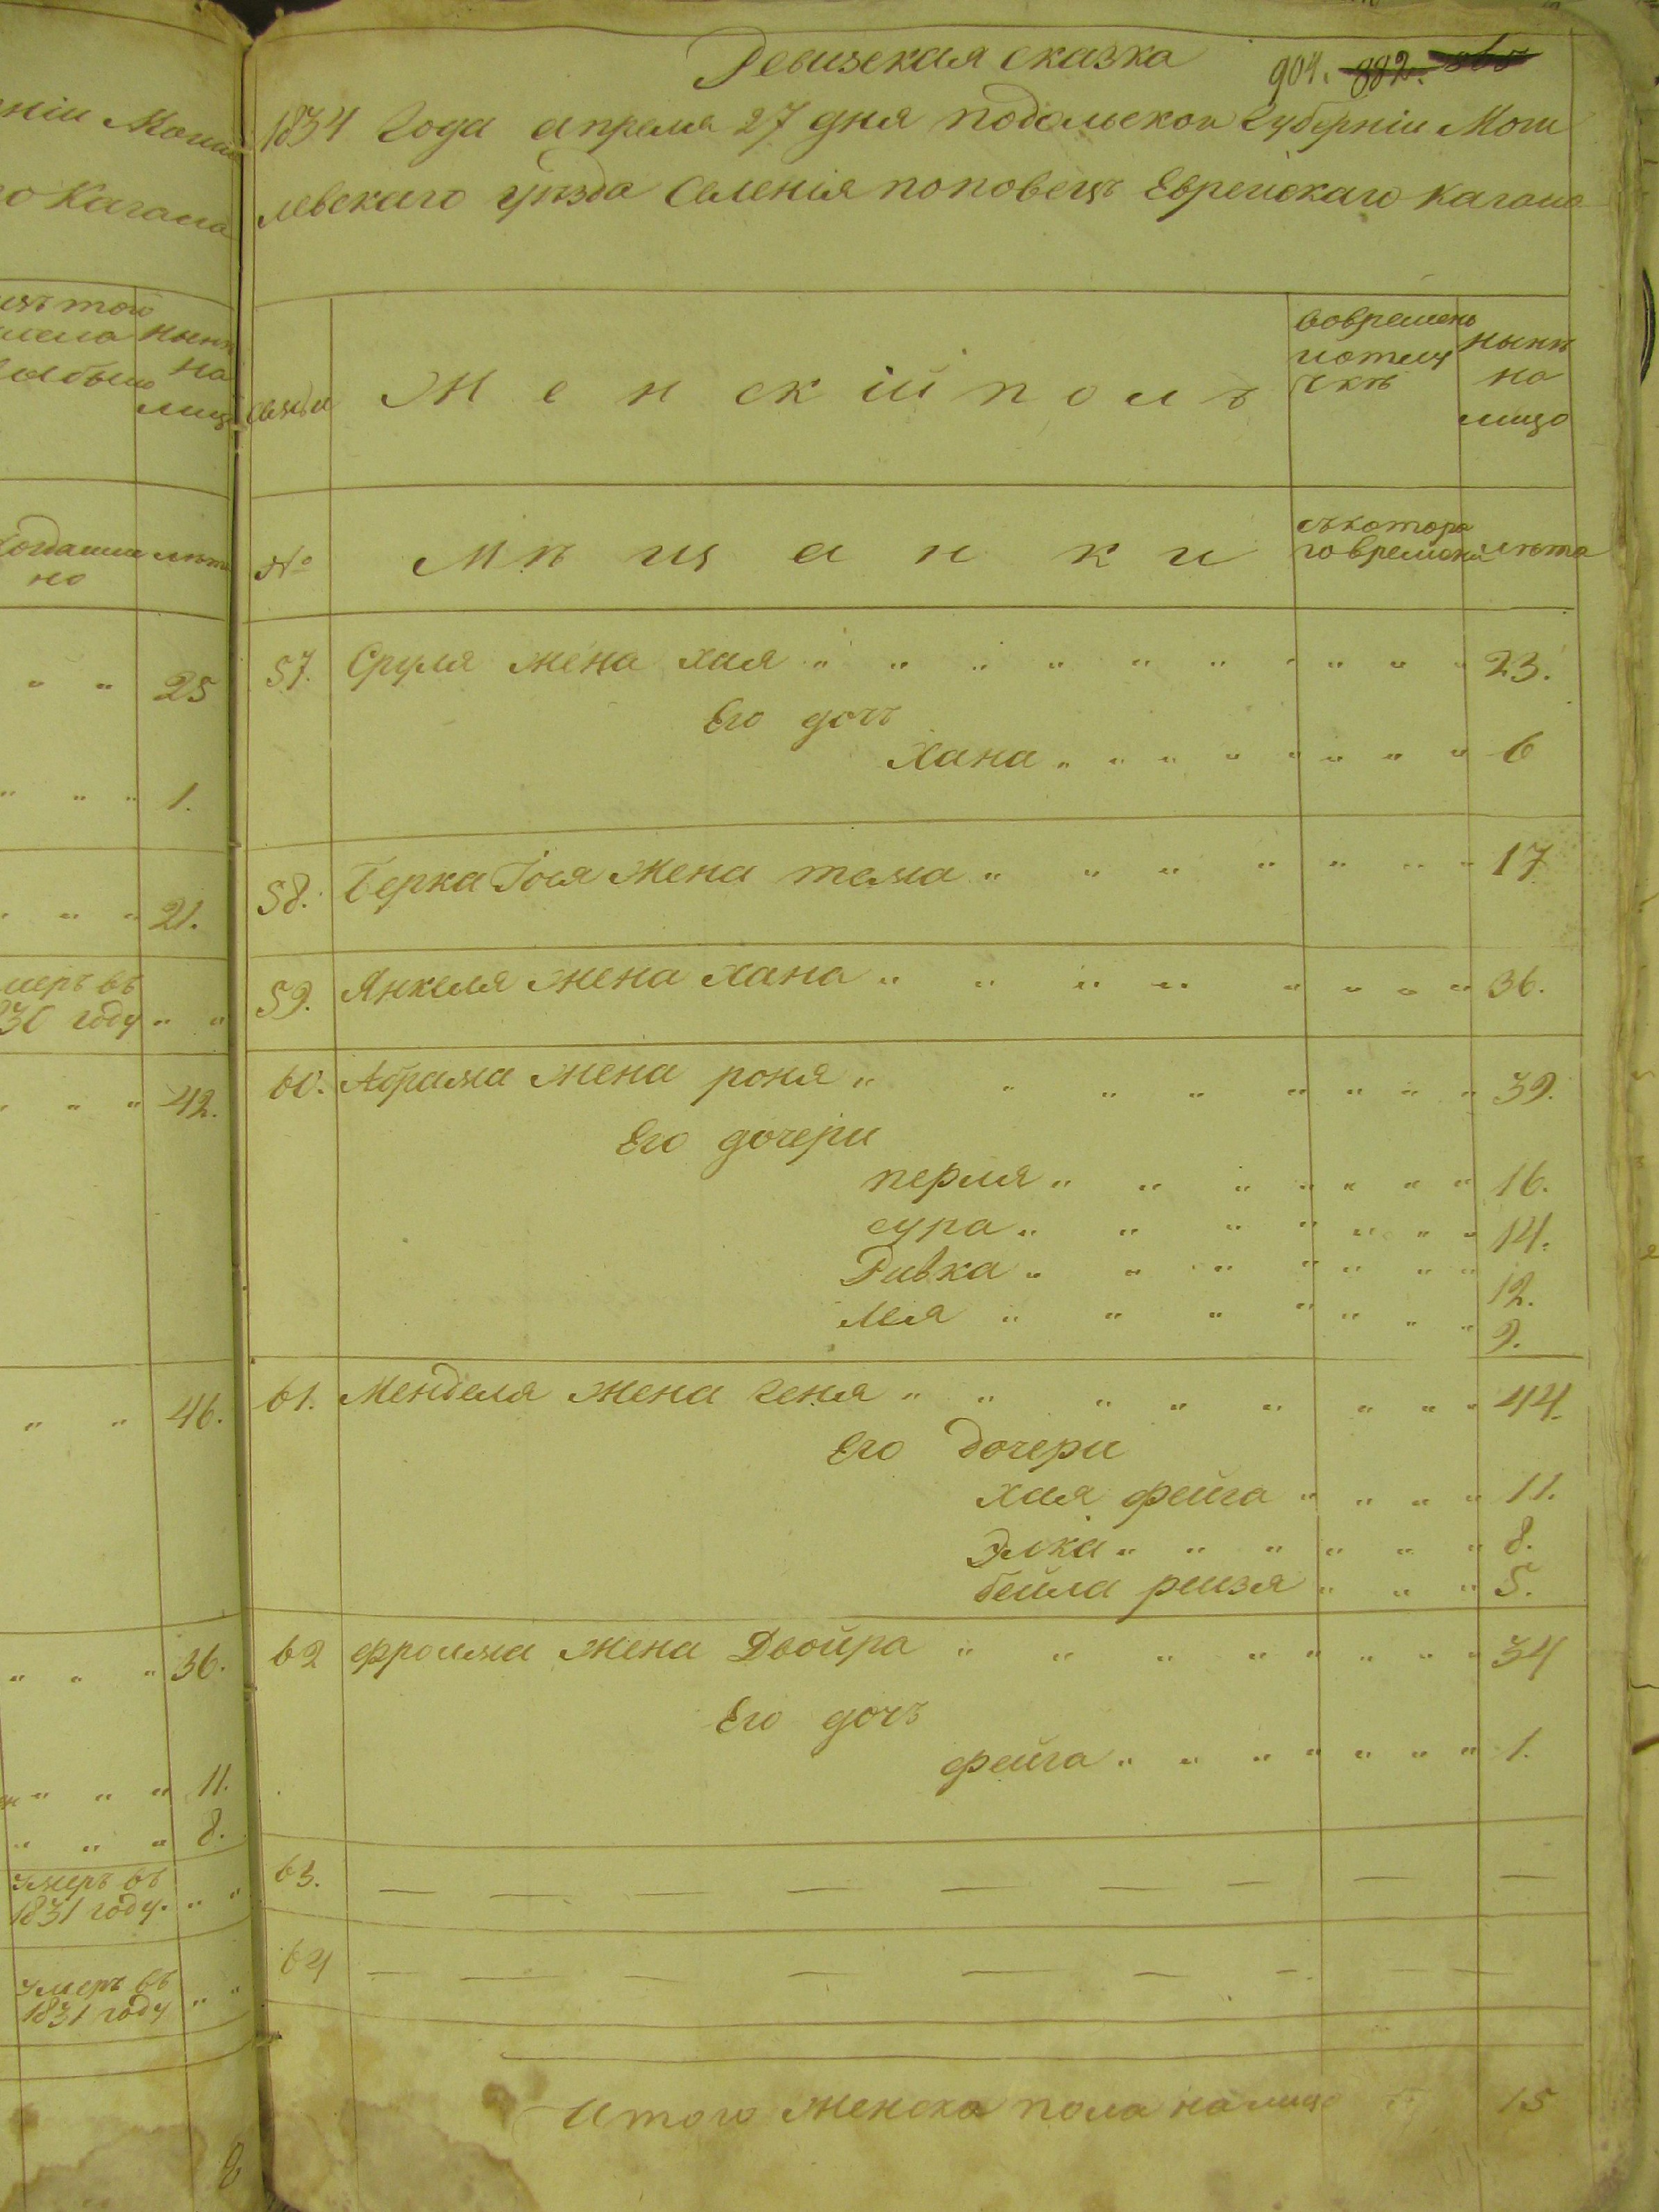 ніи Моги
го Кагала
нынѣ
на
лицо
25
1.
21.
умеръ въ
году
42.
46.
36.
11.
8.
умеръ въ
1831 году.
умеръ въ
1831 году
Ревизская сказка
904. 882.
1834 Года апреля 27 дня подольской Губерніи Моги
левскаго уѣзда Селенія поповецъ Еврейскаго Кагала
Семьи
Женскій полъ
Вовремен
ной отлу
чкѣ
нынѣ
на
лицо
№
Мѣщанки
съкотора
го времени
лѣта
57. Сруля жена хая " " " " " " " " " " 23.
Его дочъ
Хана " " " " " " " " 6
58. Берка Іося жена тема " " " " " " " 17
59. Янкеля жена хана " " " " " " " " 36.
60. Абрама жена роня " " " " " " " " 39.
Его дочери
перля " " " " " " " 16.
сура " " " " " " " 14.
Ривка " " " " " " " 12.
лея " " " " " " " 9.
61. Менделя жена геня " " " " " " " " 44.
Его дочери
хая фейга " " " " 11.
Элка " " " " " " 8.
бейла рейзя " " " 5.
62 фроима жена Двойра " " " " " " " " 34
Его дочъ
фейга " " " " " " " 1.
63. — — — — — — — — —
64 — — — — — — — — —
Итого женска пола налицо 15